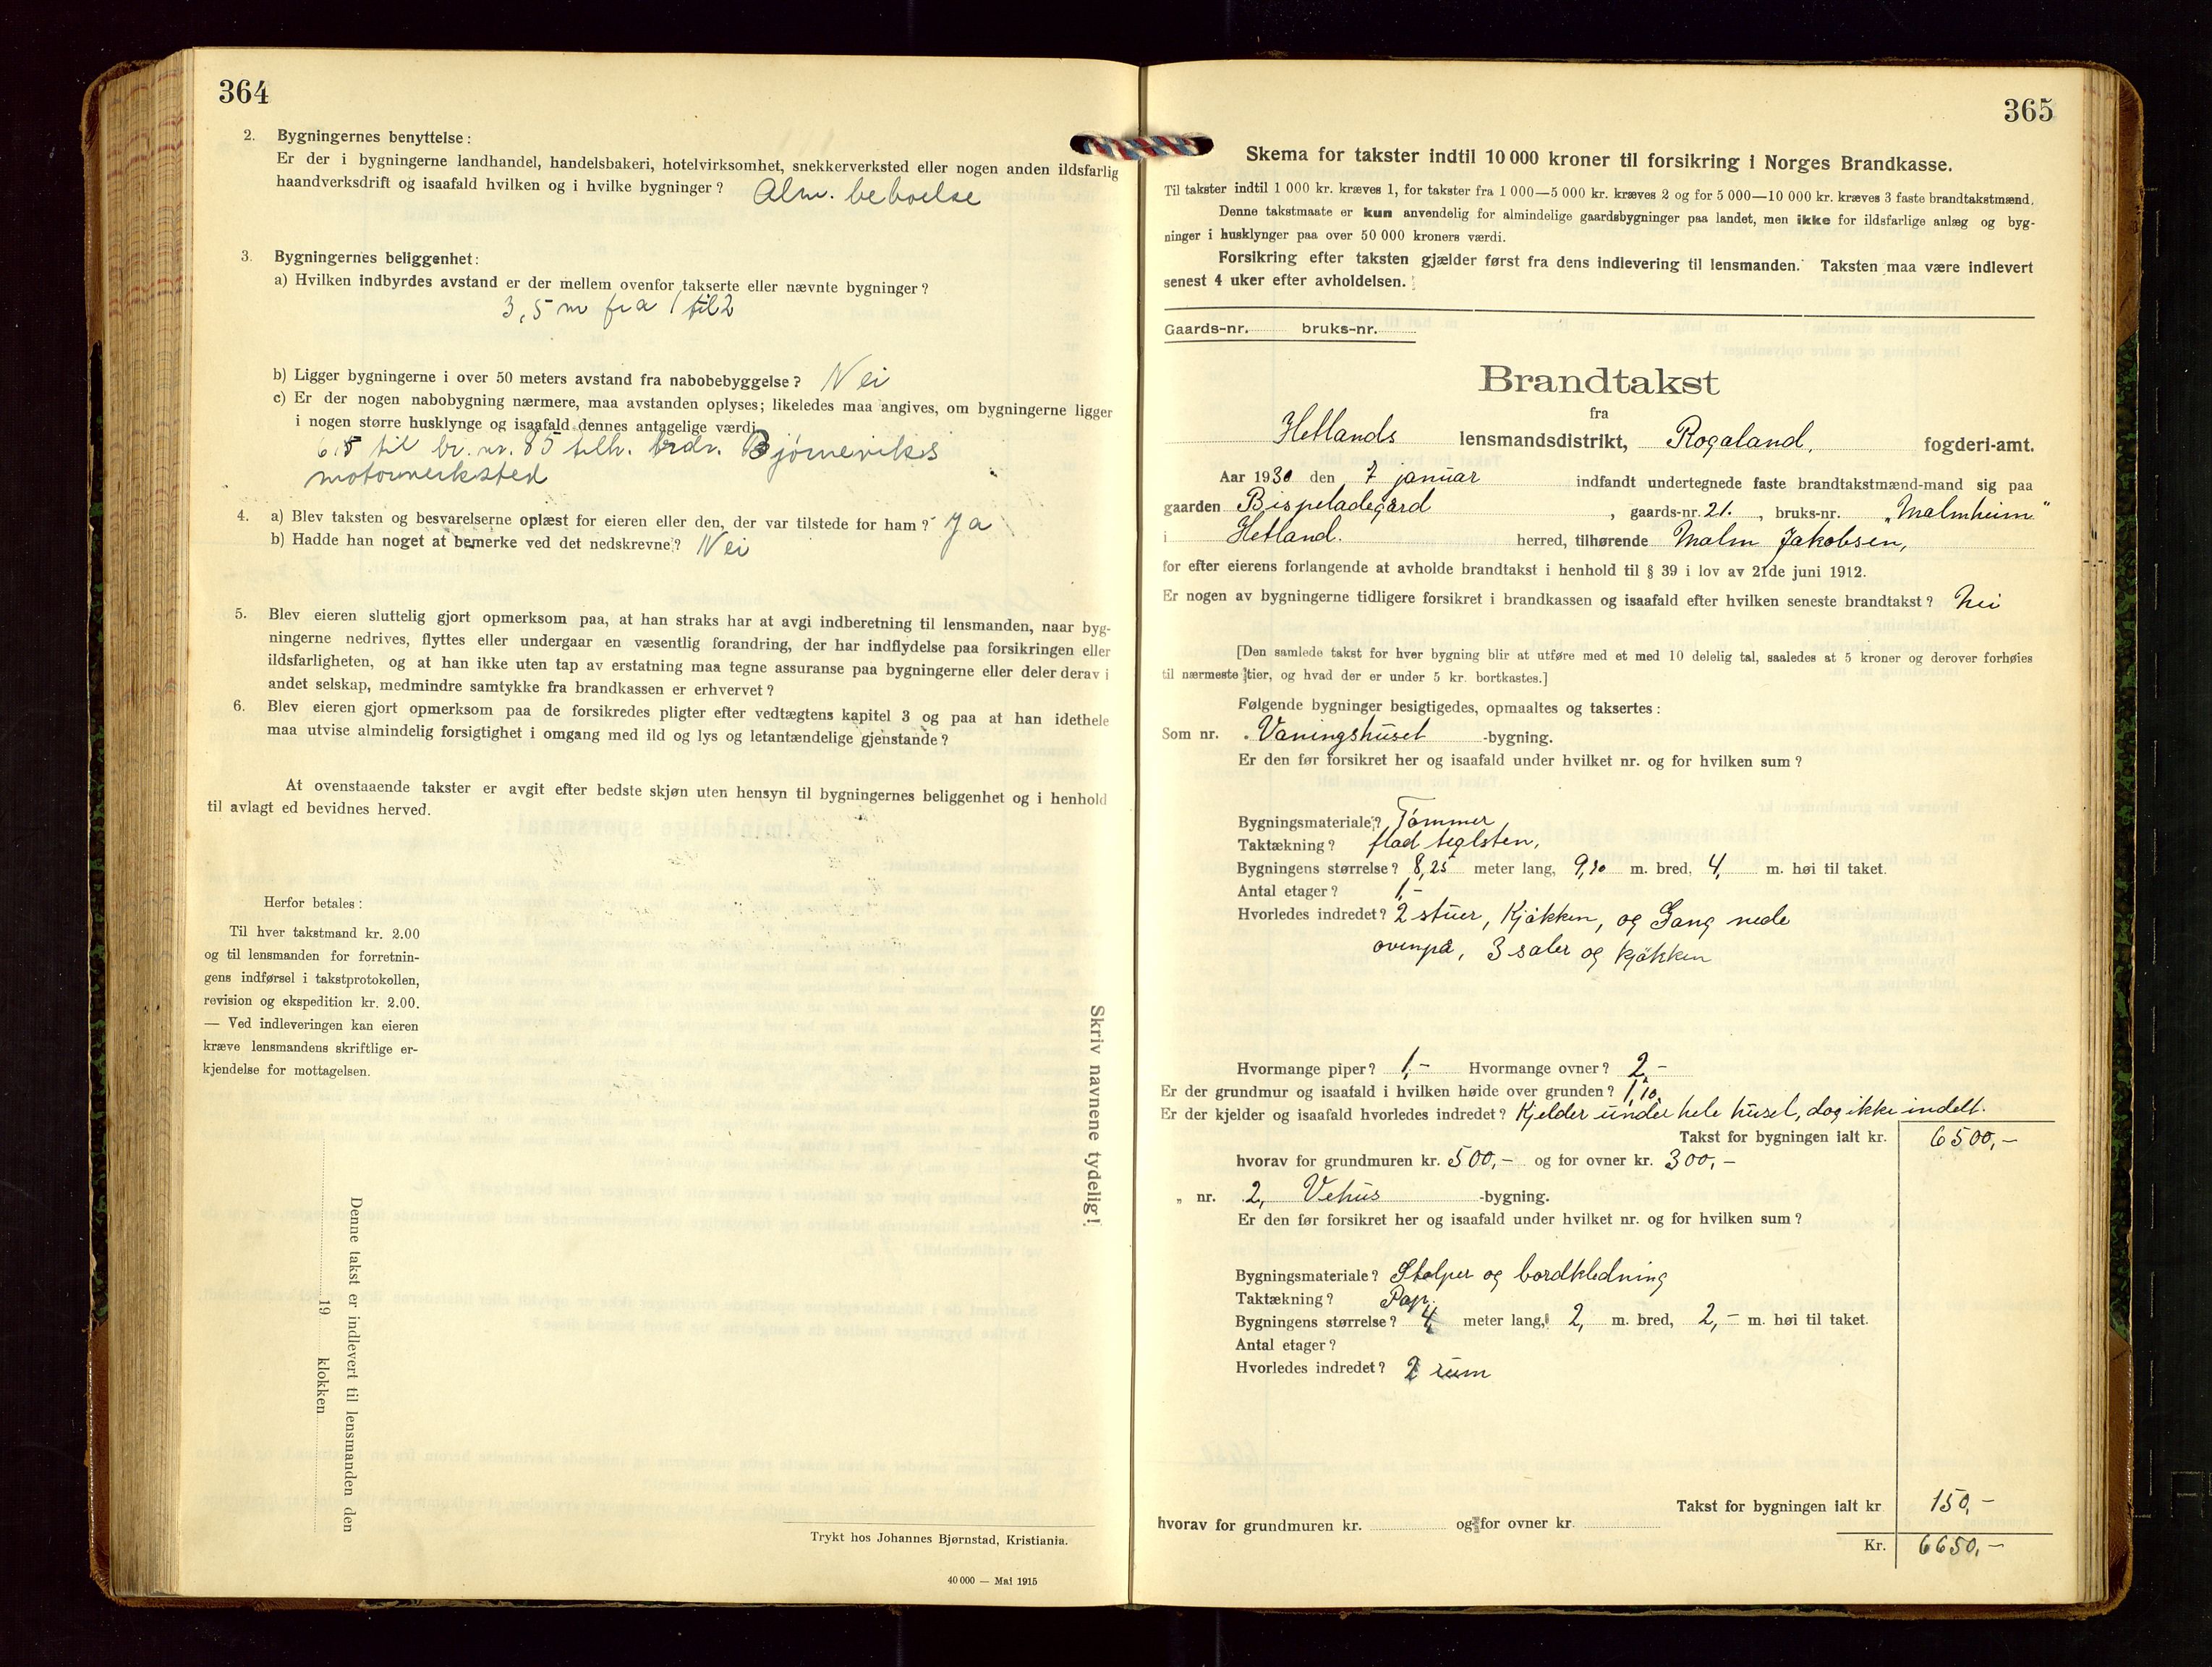 364
2. Bygningernes benyttelse:
Er der i bygningerne landhandel, handelsbakeri, hotelvirksomhet, snekkerverksted eller nogen anden ildsfarlig
haandverksdrift og isaafald hvilken og i hvilke bygninger? Alm. beboelse
3. Bygningernes beliggenhet:
a) Hvilken indbyrdes avstand er der mellem ovenfor takserte eller nævnte bygninger?
3,5 m fra 1 til 2
b) Ligger bygningerne i over 50 meters avstand fra nabobebyggelse? Nei
c) Er der nogen nabobygning nærmere, maa avstanden oplyses; likeledes maa angives, om bygningerne ligger
i nogen større husklynge og isaafald dennes antagelige værdi.
til br. nr. 85 tilh. brdr. Bjørneviks
motorverksted
4. a) Blev taksten og besvarelserne oplæst for eieren eller den, der var tilstede for ham? Ja
b) Hadde han noget at bemerke ved det nedskrevne? Nei
5. Blev eieren sluttelig gjort opmerksom paa, at han straks har at avgi indberetning til lensmanden, naar byg-
ningerne nedrives, flyttes eller undergaar en væsentlig forandring, der har indflydelse paa forsikringen eller
ildsfarligheten, og at han ikke uten tap av erstatning maa tegne assuranse paa bygningerne eller deler derav i
andet selskap, medmindre samtykke fra brandkassen er erhvervet?
6. Blev eieren gjort opmerksom paa de forsikredes pligter efter vedtægtens kapitel 3 og paa at han idethele
maa utvise almindelig forsigtighet i omgang med ild og lys og letantændelige gjenstande?
At ovenstaaende takster er avgit efter bedste skjøn uten hensyn til bygningernes beliggenhet og i henhold
til avlagt ed bevidnes herved.
Herfor betales:
Til hver takstmand kr. 2.00
og til lensmanden for forretnin-
gens indførsel i takstprotokollen,
revision og ekspedition kr. 2.00.
— Ved indleveringen kan eieren
kræve lensmandens skriftlige er-
kjendelse for mottagelsen.
Skriv navnene tydelig!
Denne takst er indlevert til lensmanden den
19 klokken
Trykt hos Johannes Bjørnstad, Kristiania.
40 000 — Mai 1915
365
Skema for takster indtil 10 000 kroner til forsikring i Norges Brandkasse.
Til takster indtil 1 000 kr. kræves 1, for takster fra 1 000—5 000 kr. kræves 2 og for 5 000—10 000 kr. kræves 3 faste brandtakstmænd.
Denne takstmaate er kun anvendelig for almindelige gaardsbygninger paa landet, men ikke for ildsfarlige anlæg og byg-
ninger i husklynger paa over 50 000 kroners værdi.
Forsikring efter taksten gjælder først fra dens indlevering til lensmanden. Taksten maa være indlevert
senest 4 uker efter avholdelsen.
Gaards-nr. bruks-nr.
Brandtakst
fra
Hetlands lensmandsdistrikt, Rogaland, fogderi-amt.
Aar 1930 den 7 januar indfandt undertegnede faste brandtakstmænd-mand sig paa
gaarden Bispeladegård, gaards-nr. 21., bruks-nr. „Malmheim“
i Hetland. herred, tilhørende Malm Jakobsen,
for efter eierens forlangende at avholde brandtakst i henhold til § 39 i lov av 21de juni 1912.
Er nogen av bygningerne tidligere forsikret i brandkassen og isaafald efter hvilken seneste brandtakst? Nei
[Den samlede takst for hver bygning blir at utføre med et med 10 delelig tal, saaledes at 5 kroner og derover forhøies
til nærmeste tier, og hvad der er under 5 kr. bortkastes.]
Følgende bygninger besigtigedes, opmaaltes og taksertes:
Som nr. Vaningshuset -bygning.
Er den før forsikret her og isaafald under hvilket nr. og for hvilken sum?
Bygningsmateriale? Tømmer
Taktækning? flad teglsten,
Bygningens størrelse? 8,25 meter lang, 9,10 m. bred, 4, m. høi til taket.
Antal etager? 1,-
Hvorledes indredet? 2 stuer, Kjøkken, og Gang nede
ovenpå, 3 saler og kjøkken
Hvormange piper? 1,- Hvormange ovner? 2,-
Er der grundmur og isaafald i hvilken høide over grunden? 1,10,
Er der kjelder og isaafald hvorledes indredet? Kjelder under hele huset, dog ikke indelt.
Takst for bygningen ialt kr. 6500,-
hvorav for grundmuren kr. 500,- og for ovner kr. 300,-
„ nr. 2, Vehus -bygning.
Er den før forsikret her og isaafald under hvilket nr. og for hvilken sum?
Bygningsmateriale? Stolper og bordkledning
Taktækning? Pap.
Bygningens størrelse? 4, meter lang, 2, m. bred, 2,- m. høi til taket.
Antal etager?
Hvorledes indredet? 2 rum
Takst for bygningen ialt kr 150,-
hvorav for grundmuren kr. og for ovner kr.
Kr. 6650,-